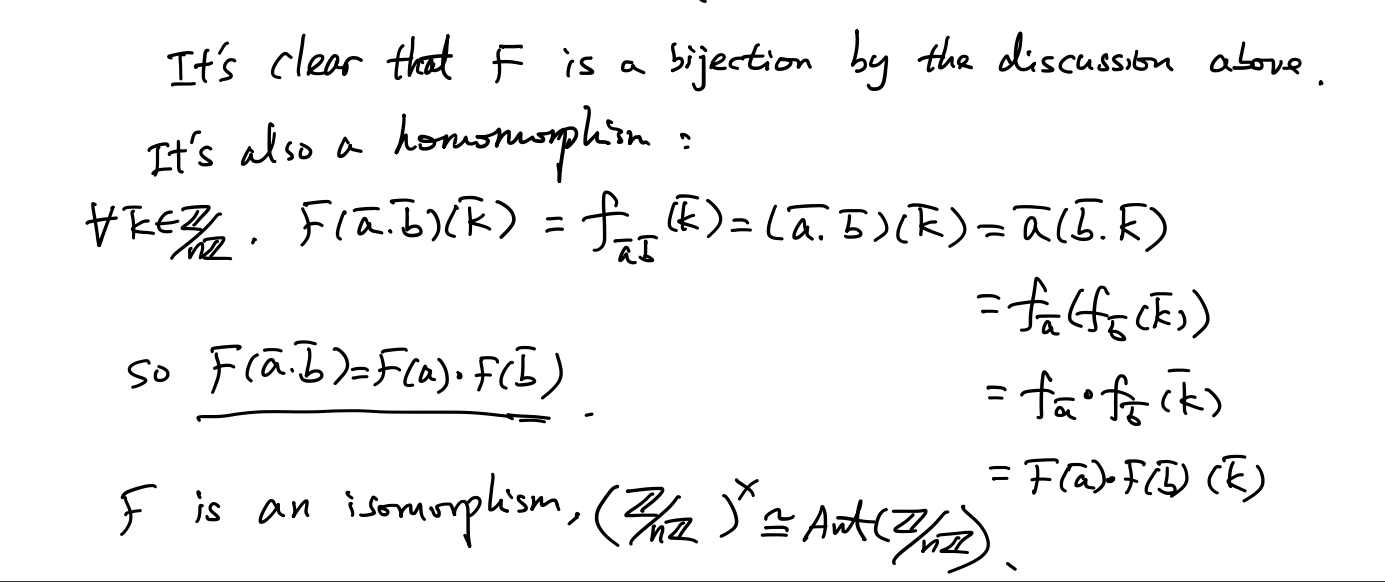 It's clear that F is a bijection by the discussion above.
It's also a homomorphism:
∀ k̄ ∈ ℤ/nℤ. F(ā.b̄)(k̄) = f_{āb̄}(k̄) = (ā.b̄)(k̄) = ā(b̄.k̄)
= f_ā(f_b̄(k̄))
so F(ā.b̄)=F(a)∘F(b̄).
= f_ā∘f_b̄(k̄)
= F(ā)∘F(b̄)(k̄)
F is an isomorphism, (ℤ/nℤ)^× ≅ Aut(ℤ/nℤ).